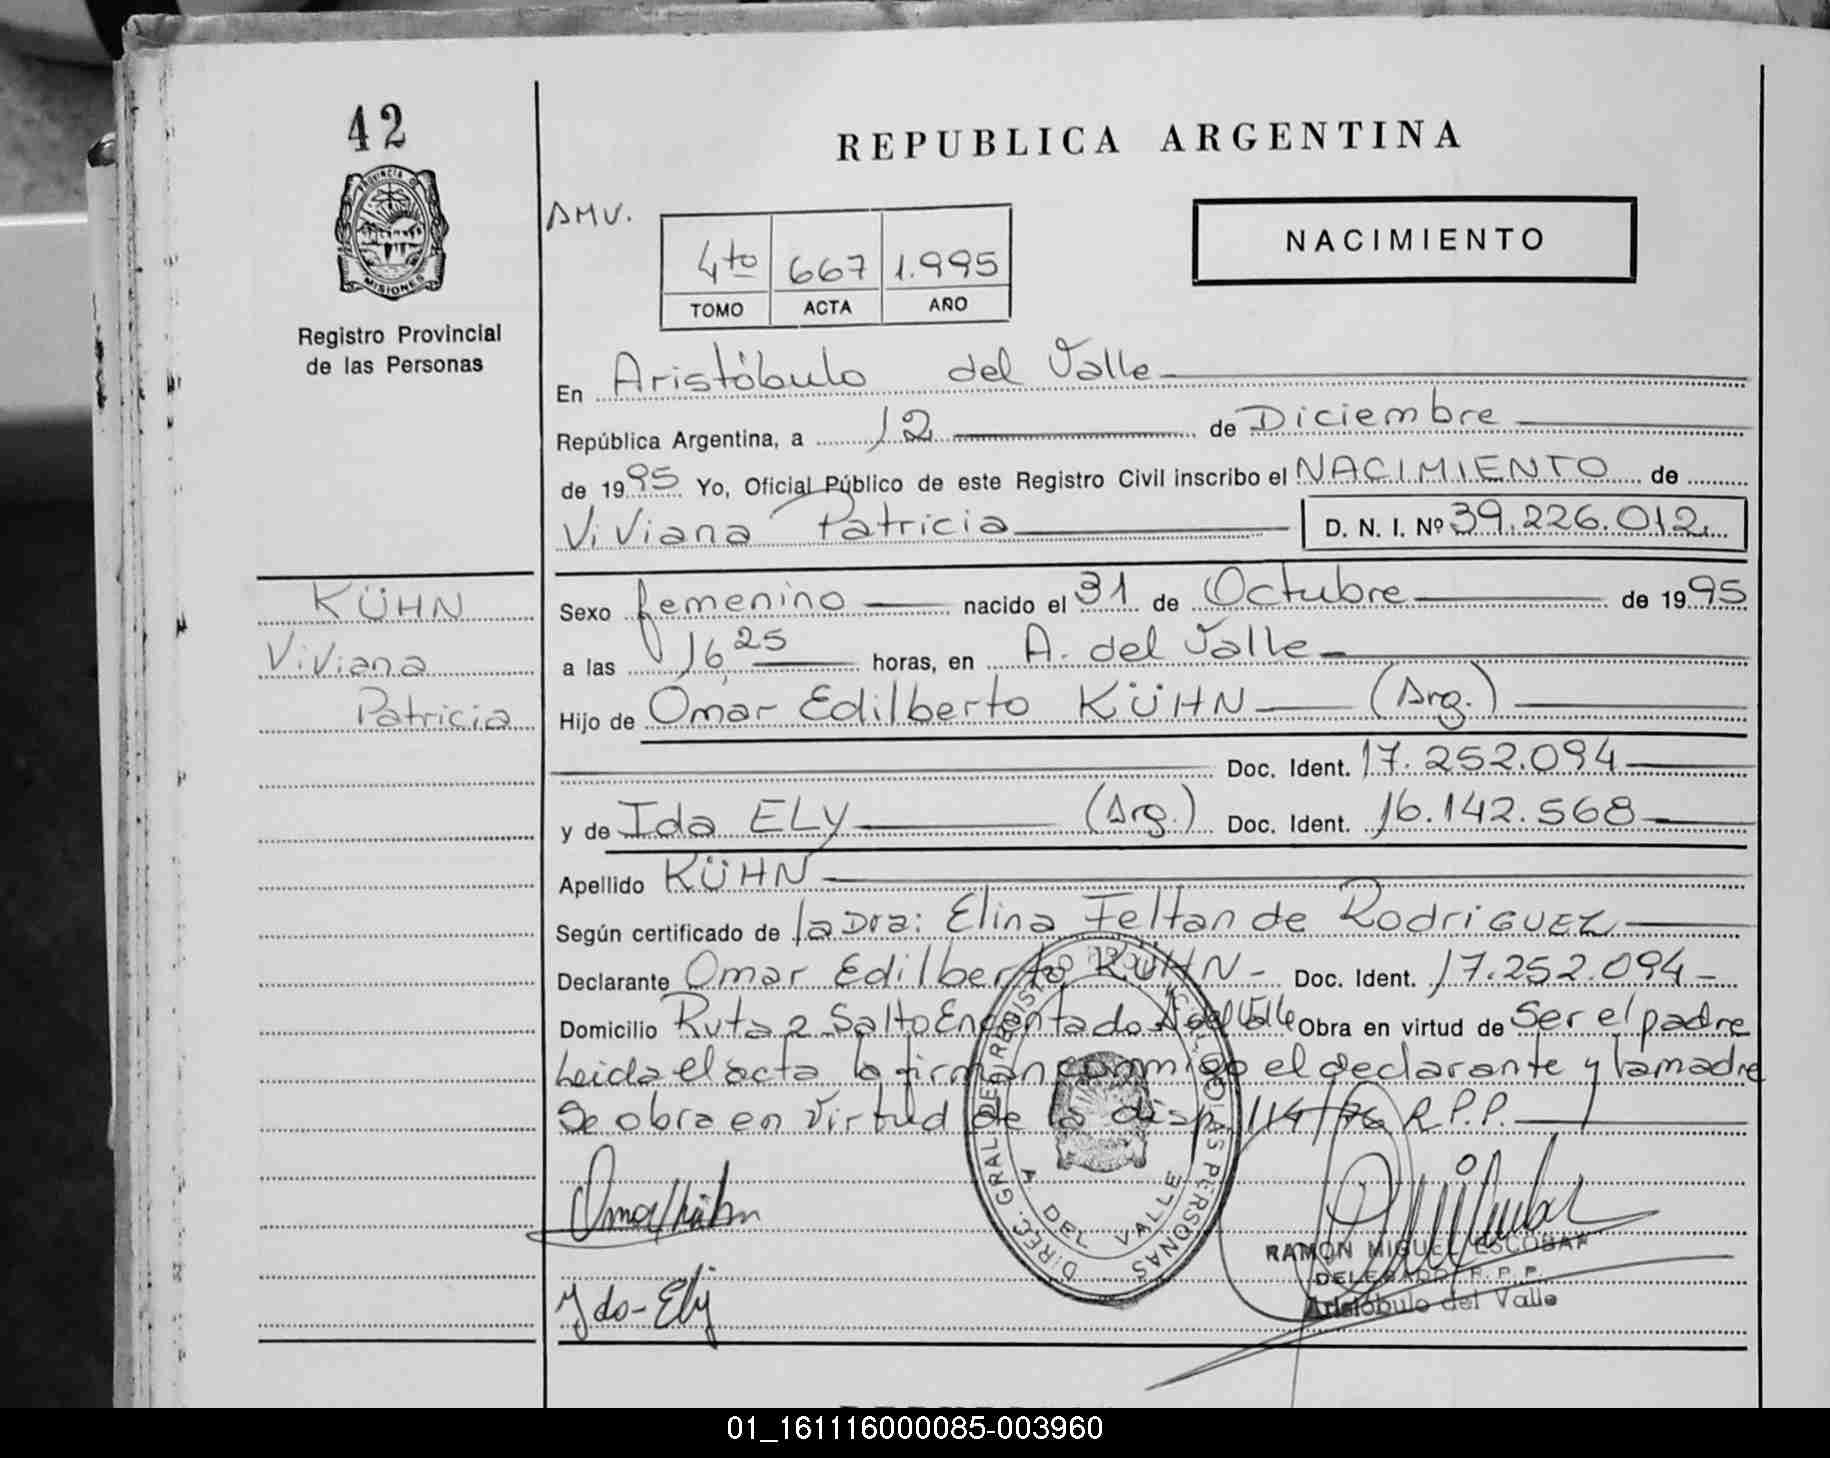 42
REPUBLICA ARGENTINA
PROVINCIA DE
MISIONES
AMV.
4to 667 1.995
TOMO ACTA AÑO
NACIMIENTO
Registro Provincial
de las Personas
En Aristóbulo del Valle
República Argentina, a 12 de Diciembre
de 1995 Yo, Oficial Público de este Registro Civil inscribo el NACIMIENTO de
Viviana Patricia D. N. I. Nº 39.226.012
KÜHN
Viviana
Patricia
Sexo femenino nacido el 31 de Octubre de 1995
a las 16,25 horas, en A. del Valle
Hijo de Omar Edilberto KÜHN (Arg.)
Doc. Ident. 17.252.094
y de Ida ELY (Arg.) Doc. Ident. 16.142.568
Apellido KÜHN
Según certificado de la Dra: Elina Feltan de RodriGUEZ
Declarante Omar Edilberto KÜHN - Doc. Ident. 17.252.094 -
Domicilio Ruta 2 Salto Encantado A del Valle Obra en virtud de Ser el padre
Leida el acta la firman conmigo el declarante y la madre
Se obra en virtud de la disp. 114/76 R.P.P.
Omar Kühn
DIREC. GRAL. DE REGISTRO DE LAS PERSONAS
A. DEL VALLE
RAMON MIGUEL ESCOBAR
DELEGADO R. P. P.
Aristóbulo del Valle
Ida - Ely
01_161116000085-003960